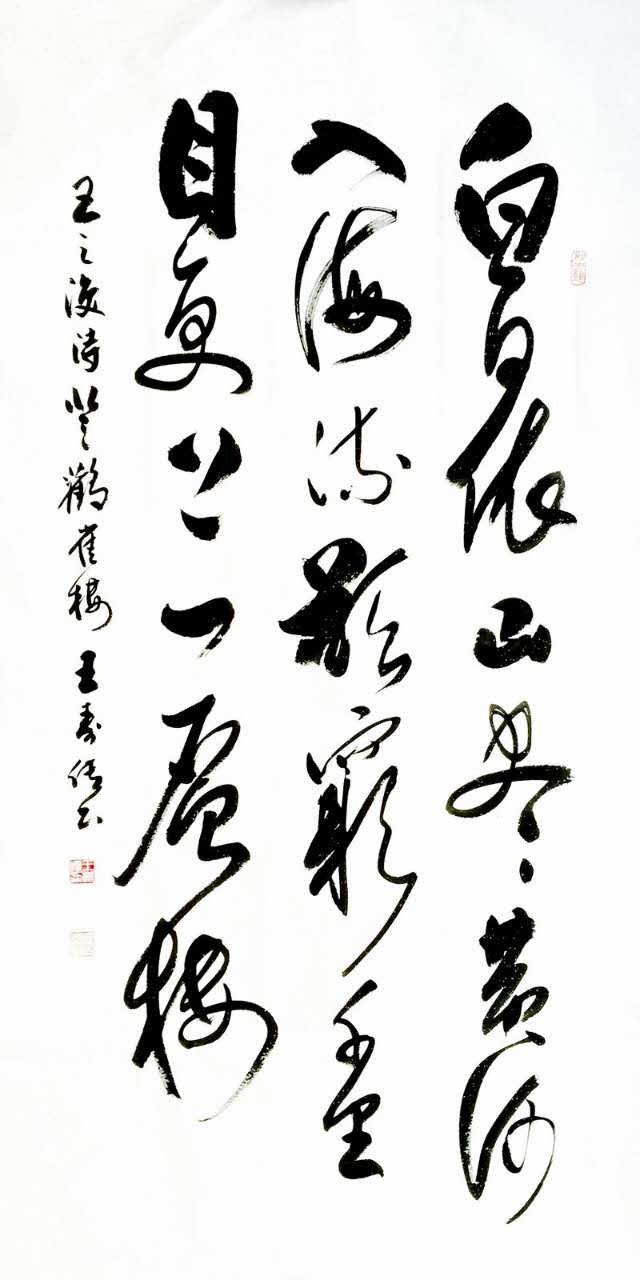 白日依山尽黄河
入海流欲穷千里
目更上一层楼
王之涣诗登鹳雀楼 王寿